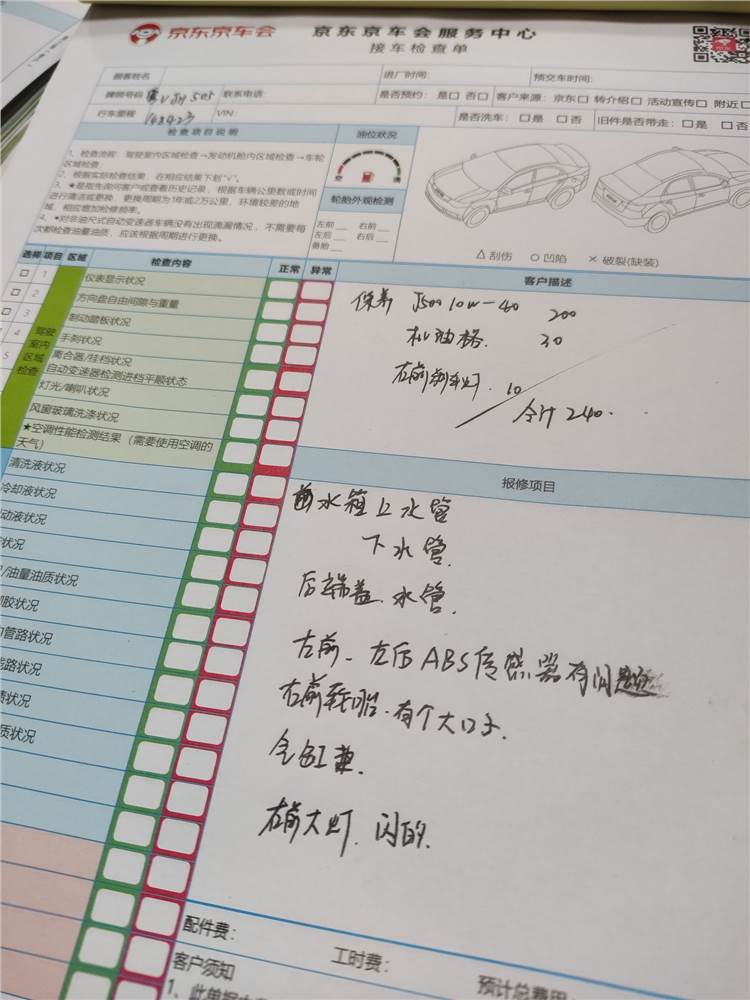 京东京车会 京东京车会服务中心
接车检查单
顾客姓名 进厂时间: 预交车时间:
牌照号码 联系电话: 是否预约: 是□ 否□ 客户来源: 京东□ 转介绍□ 活动宣传□ 附近□
行车里程 148423 VIN: 是否洗车: □是 □否 旧件是否带走: □是 □否
检查项目说明 油位状况
1、检查流程: 驾驶室内区域检查→发动机舱内区域检查→车轮
区域检查;
2、根据实际检查结果, 在相应结果下划“√”。
3、★是指先询问客户或查看历史记录, 根据车辆公里数或时间
进行清洁或更换, 更换周期为1年或2万公里, 环境较差的地
域, 相应增加检修频率。
4、*对非油尺式自动变速器车辆没有出现滴漏情况, 不需要每
次都检查油量油质, 应该根据周期进行更换。
空 满
轮胎外观检测
左前 右前
左后 右后
备胎
△刮伤 ○凹陷 ×破裂(缺装)
选择 项目 区域 检查内容 正常 异常
1 仪表显示状况
2 方向盘自由间隙与重量
3 制动踏板状况
4 手刹状况
5 离合器/挂档状况
驾驶室内区域检查
自动变速器检测进档平顺状态
灯光/喇叭状况
风窗玻璃洗涤状况
★空调性能检测结果(需要使用空调的
天气)
清洗液状况
冷却液状况
动液状况
状况
/油量油质状况
胶状况
管路状况
线路状况
状况
质状况
客户描述
保养 J500 10W-40 200
机油格. 30
右前刹车灯. 10
合计 240.
报修项目
水箱上水管
下水管.
后端盖. 水管.
左前. 左后ABS传感器有问题
右前轮胎. 有个大口子.
右前大灯. 闪的.
配件费:
工时费:
预计总费用
客户须知
1、此单据